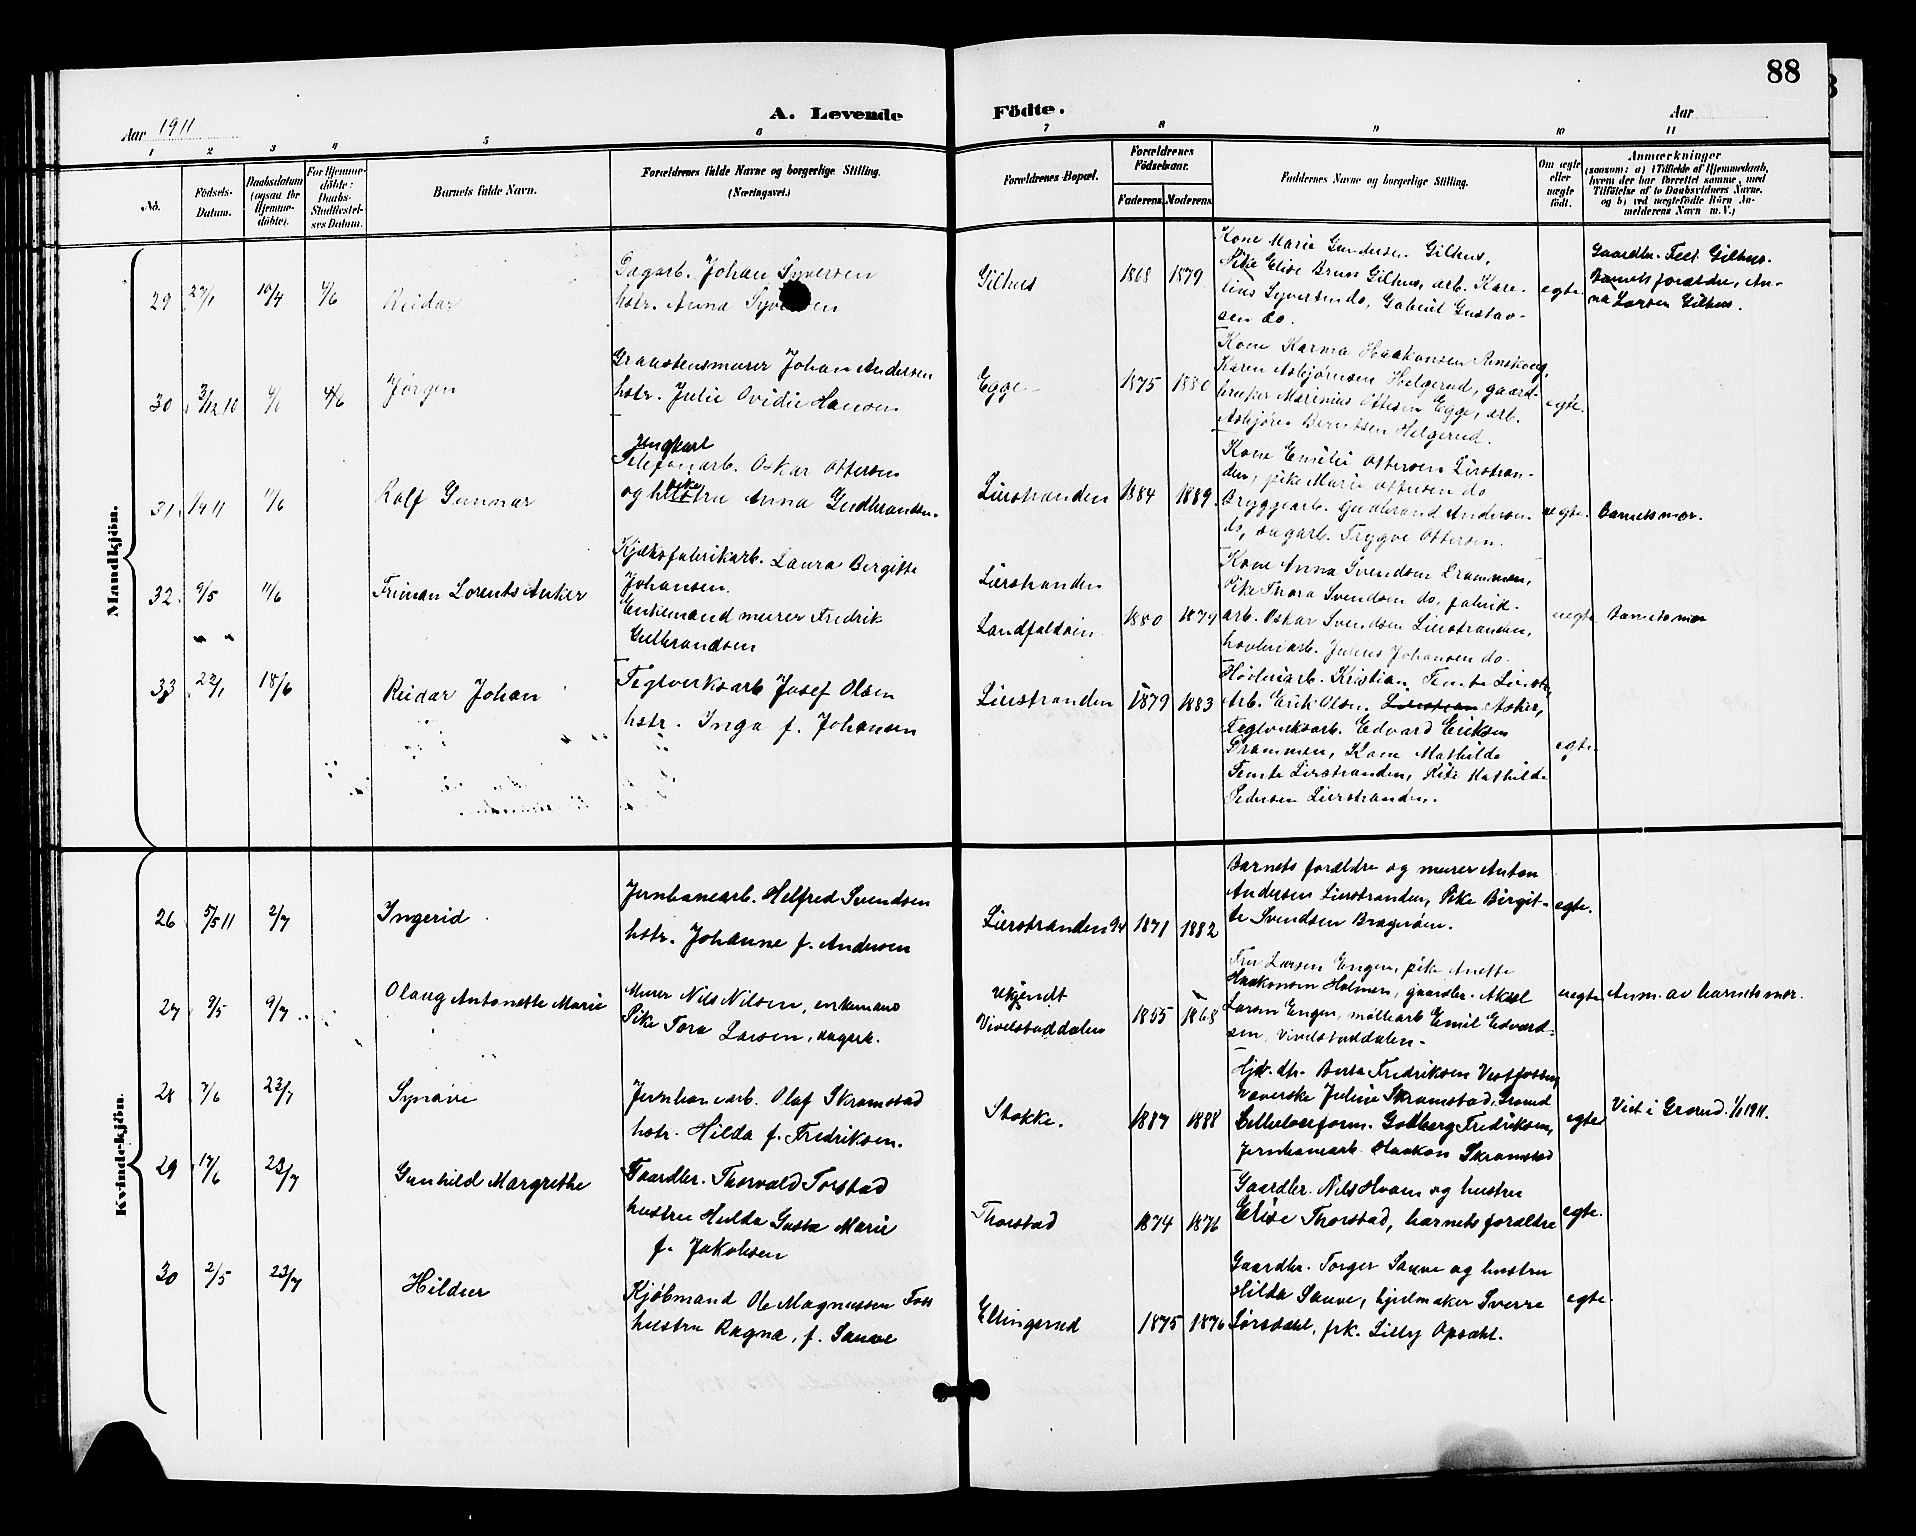 88
Aar 1911
A. Levende Födte.
Aar
1 2 3 4 5 6 7 8 9 10 11
No.
Födsels-Datum.
Daabsdatum (ogsaa for Hjemmedöbte).
For Hjemmedöbte: Daabs-Stadfæstelses Datum.
Barnets fulde Navn.
Forældrenes fulde Navne og borgerlige Stilling. (Næringsvei.)
Forældrenes Bopæl.
Forældrenes Födselsaar.
Faderens Moderens
Faddernes Navne og borgerlige Stilling.
Om ægte eller uægte födt.
Anmærkninger
(saasom: a) i Tilfælde af Hjemmedaab, hvem der har forrettet samme, med Tilföielse af to Daabsvidners Navne. og b) ved uægtefödte Börn Anmelderens Navn m. V.)
Mandkjön.
29 27/1 10/4 4/6 Reidar
Dagarb. Johan Syversen
hstr. Anna Syversen
Gilhus 1868 1879
Kone Marie Gundersen Gilhus,
Pike Elise Bruun Gilhus, arb. Kare-
lius Syversen do, Gabriel Gustav-
sen do.
egte.
Gaardbr. Feet Gilhus.
Barnets forældre, An-
na Larsen Gilhus.
30 3/12 10 4/6 Jørgen
Graastensmurer Johan Andersen
hstr. Julie Ovidie Hansen
Egge 1875 1880
Kone Karma Haakonsen
Karen Asbjørnsen Helgerud, gaard-
bruker Marinius Ottesen Egge, arb.
Asbjørn Berntsen Helgerud.
egte.
31 1/4 11 11/6 Rolf Gunnar
Ungkarl
Telefonarb. Oskar Ottersen
og pike hustru Anna Gudbrandsen.
Lierstranden 1884 1889
Kone Emilie Ottersen Lierstran-
den, pike Marie Ottersen do
Bryggearb. Gudbrand Andersen
do, sagarb. Trygve Ottersen.
uegte. Barnets mor.
32 9/5 11/6 Friman Lorents Anker
Kjæksfabrikarb. Laura Birgitte
Johansen.
Enkemand murer Fredrik
Gulbrandsen
Lierstranden
Landfaldöien 1880 1879
Kone Anna Svendsen Drammen,
Pike Thora Svendsen do, fabrik-
arb. Oskar Svendsen Lierstranden,
høvleriarb. Julius Johansen do.
uegte Barnets mor
33 22/1 18/6 Reidar Johan
Teglverksarb Josef Olsen
hstr. Inga f. Johansen
Lierstranden 1879 1883
Høvleriarb. Kristian Temte Lierstr,
Arb. Erik Olsen Lierstran Asker,
Teglverksarb. Edvard Eriksen
Drammen, Kone Mathilde
Temte Lierstranden, Pike Mathilde
Pedersen Lierstranden.
egte.
Kvindekjön.
26 5/5 11 2/7 Ingerid
Jernbanearb. Helfred Svendsen
hstr. Johanne f. Andersen
Lierstranden 94 1871 1882
Barnets forældre og murer Anton
Andersen Lierstranden, Pike Birgit-
te Svendsen Bragerøen.
egte.
27 9/5 9/7 Olaug Antonette Marie
Murer Nils Nilsen, enkemand
Pike Tora Larsen, dagarb.
ukjendt
Vivelstaddalen 1855 1868
Fru Larsen Engen, pike Anette
Haakonsen Holmen, gaardbr. Aksel
Larsen Engen, møllearb Emil Edvard-
sen Vivelstaddalen.
uegte Anm. av barnets mor.
28 7/6 23/7 Synøve
Jernbanearb. Olaf Skramstad
hstr. Hilda f. Fredriksen.
Stokke. 1887 1888
Gjd. dtr. Berta Fredriksen Vestfossen,
væverske Juline Skramstad, Grorud
Celluloseform. Godberg Fredriksen,
Jernbanearb. Haakon Skramstad
egte Viet i Grorud 1/1 1911.
29 17/6 23/7 Gunhild Margrethe
Gaardbr. Thorvald Torstad
hustru Hulda Gusta Marie
f. Jakobsen
Thorstad 1874 1876
Gaardbr. Nils Hvam og hustru
Elise Thorstad, barnets forældre
egte.
30 2/5 23/7 Hildur
Kjøbmand Ole Magnussen Foss
hustru Ragna, f. Sauve
Eltingerud 1875 1876
Gaardbr. Torger Sauve og hustru
Hilda Sauve, hjulmaker Sverre
Sørsdahl, frk. Lilly Opsahl.
egte.